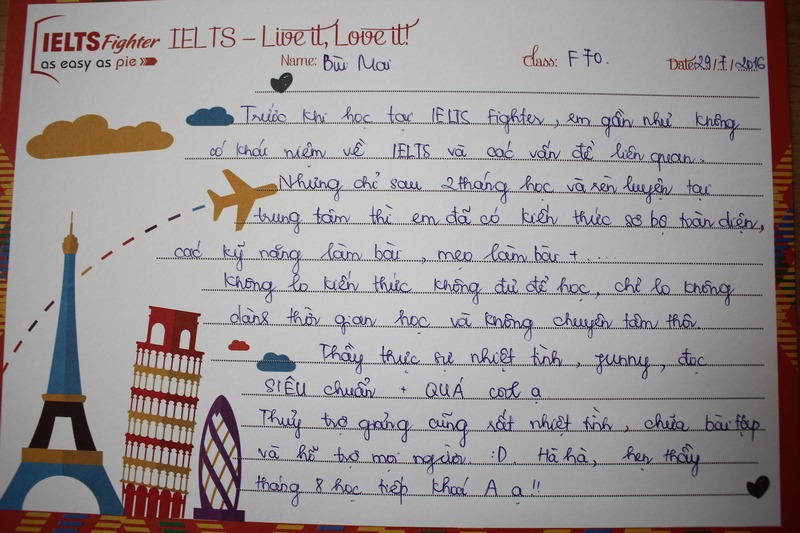 IELTS Fighter IELTS – Live it, Love it!
as easy as pie
Name: Bùi Mai Class: F70. Date: 29/7/2016
Trước khi học tại IELTS Fighter, em gần như không
có khái niệm về IELTS và các vấn đề liên quan.
Nhưng chỉ sau 2 tháng học và rèn luyện tại
trung tâm thì em đã có kiến thức sơ bộ toàn diện,
các kỹ năng làm bài, mẹo làm bài + .....
Không lo kiến thức không đủ để học, chỉ lo không
dành thời gian học và không chuyên tâm thôi.
Thầy thực sự nhiệt tình, funny, đọc
SIÊU chuẩn + QUÁ cool ạ
Thuỷ trợ giảng cũng rất nhiệt tình, chữa bài tập
và hỗ trợ mọi người. :D. Hà hà, hẹn thầy
tháng 8 học tiếp khoá A ạ!!